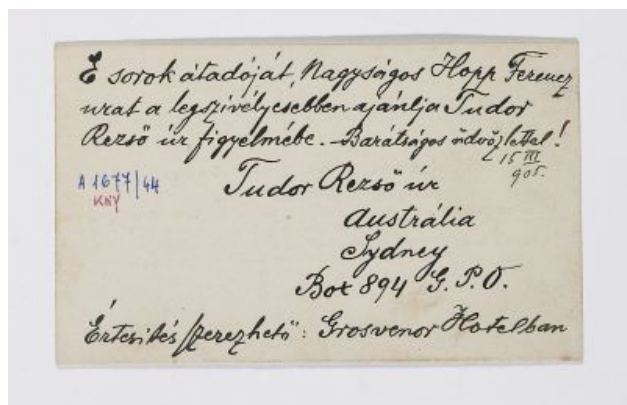 E sorok átadóját, Nagyságos Hopp Ferencz
urat a legszívélyesebben ajánlja Tudor
Rezső úr figyelmébe. – Barátságos üdvözlettel!
15 III 905.
A 1677/44
KNY
Tudor Rezső úr
Austrália
Sydney
Box 894 G. P. O.
Értesítés szerezhető: Grosvenor Hotelban